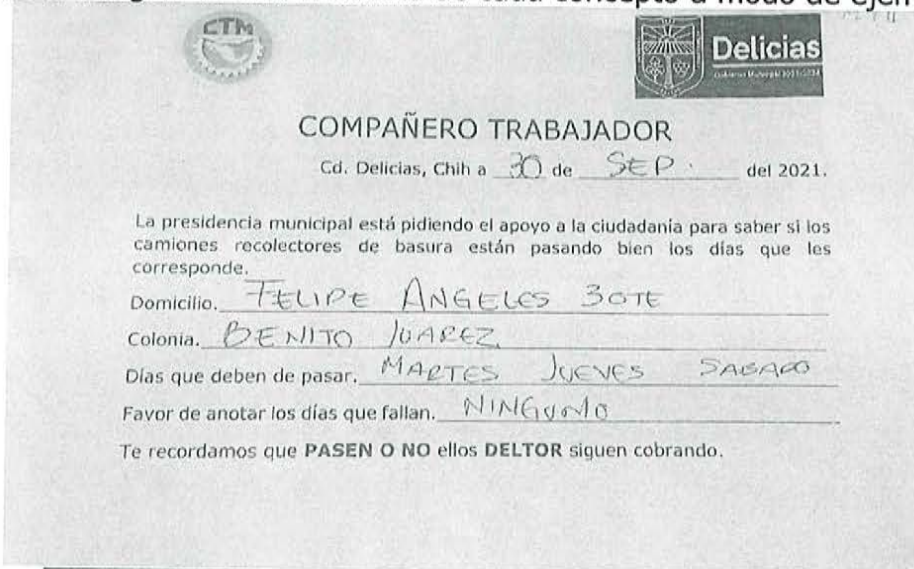 cada concepto a modo de ejem
CTM
Delicias
Gobierno Municipal 2021-2024
COMPAÑERO TRABAJADOR
Cd. Delicias, Chih a 30 de SEP. del 2021.
La presidencia municipal está pidiendo el apoyo a la ciudadanía para saber si los
camiones recolectores de basura están pasando bien los días que les
corresponde.
Domicilio. FELIPE ANGELES 30TE
Colonia. BENITO JUAREZ
Días que deben de pasar. MARTES JUEVES SABADO
Favor de anotar los días que fallan. NINGUNO
Te recordamos que PASEN O NO ellos DELTOR siguen cobrando.